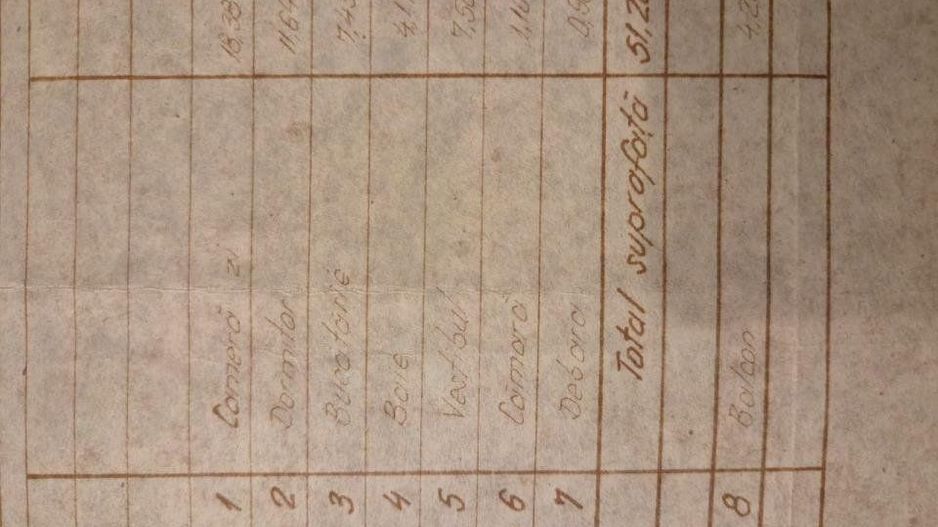 1 Cameră 18,38
2 Dormitor 11,64
3 Bucătărie 7,43
4 Baie
5 Vestibul
6 Cămară
7 Debara
Total suprafață
8 Balcon